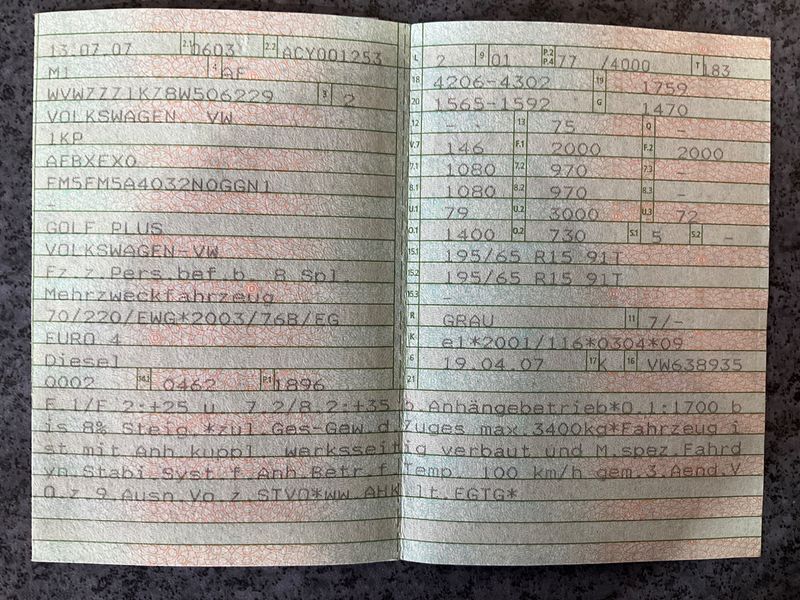 13.07.07 2.1 0603 2.2 ACY001253
M1 4 AF
WVWZZZ1KZ8W506229 3 2
VOLKSWAGEN, VW
1KP
AFBXEX0
FM5FM5A4032N0GGN1
-
GOLF PLUS
VOLKSWAGEN-VW
Fz.z.Pers.bef.b. 8 Spl.
Mehrzweckfahrzeug
70/220/EWG*2003/76B/EG
EURO 4
Diesel
0002 14.1 0462 P.1 1896
L 2 9 01 P.2 P.4 77 /4000 T 183
18 4206-4302 19 1759
20 1565-1592 G 1470
12 - 13 75 Q -
V.7 146 F.1 2000 F.2 2000
7.1 1080 7.2 970 7.3 -
8.1 1080 8.2 970 8.3 -
U.1 79 U.2 3000 U.3 72
O.1 1400 O.2 730 S.1 5 S.2 -
15.1 195/65 R15 91T
15.2 195/65 R15 91T
15.3 -
R GRAU 11 7/-
K e1*2001/116*0304*09
6 19.04.07 17 K 16 VW638935
21
F.1/F.2:+25 u. 7.2/8.2:+35 b.Anhängebetrieb*O.1:1700 b
is 8% Steig.*zul.Ges-Gew.d.Zuges max.3400kg*Fahrzeug i
st mit Anh.kuppl. werksseitig verbaut und M.spez.Fahrd
yn.Stabi.Syst.f.Anh.Betr.f.Temp. 100 km/h gem.3.Aend.V
O.z.9.Ausn.Vo.z.STVO*ww.AHK lt.EGTG*